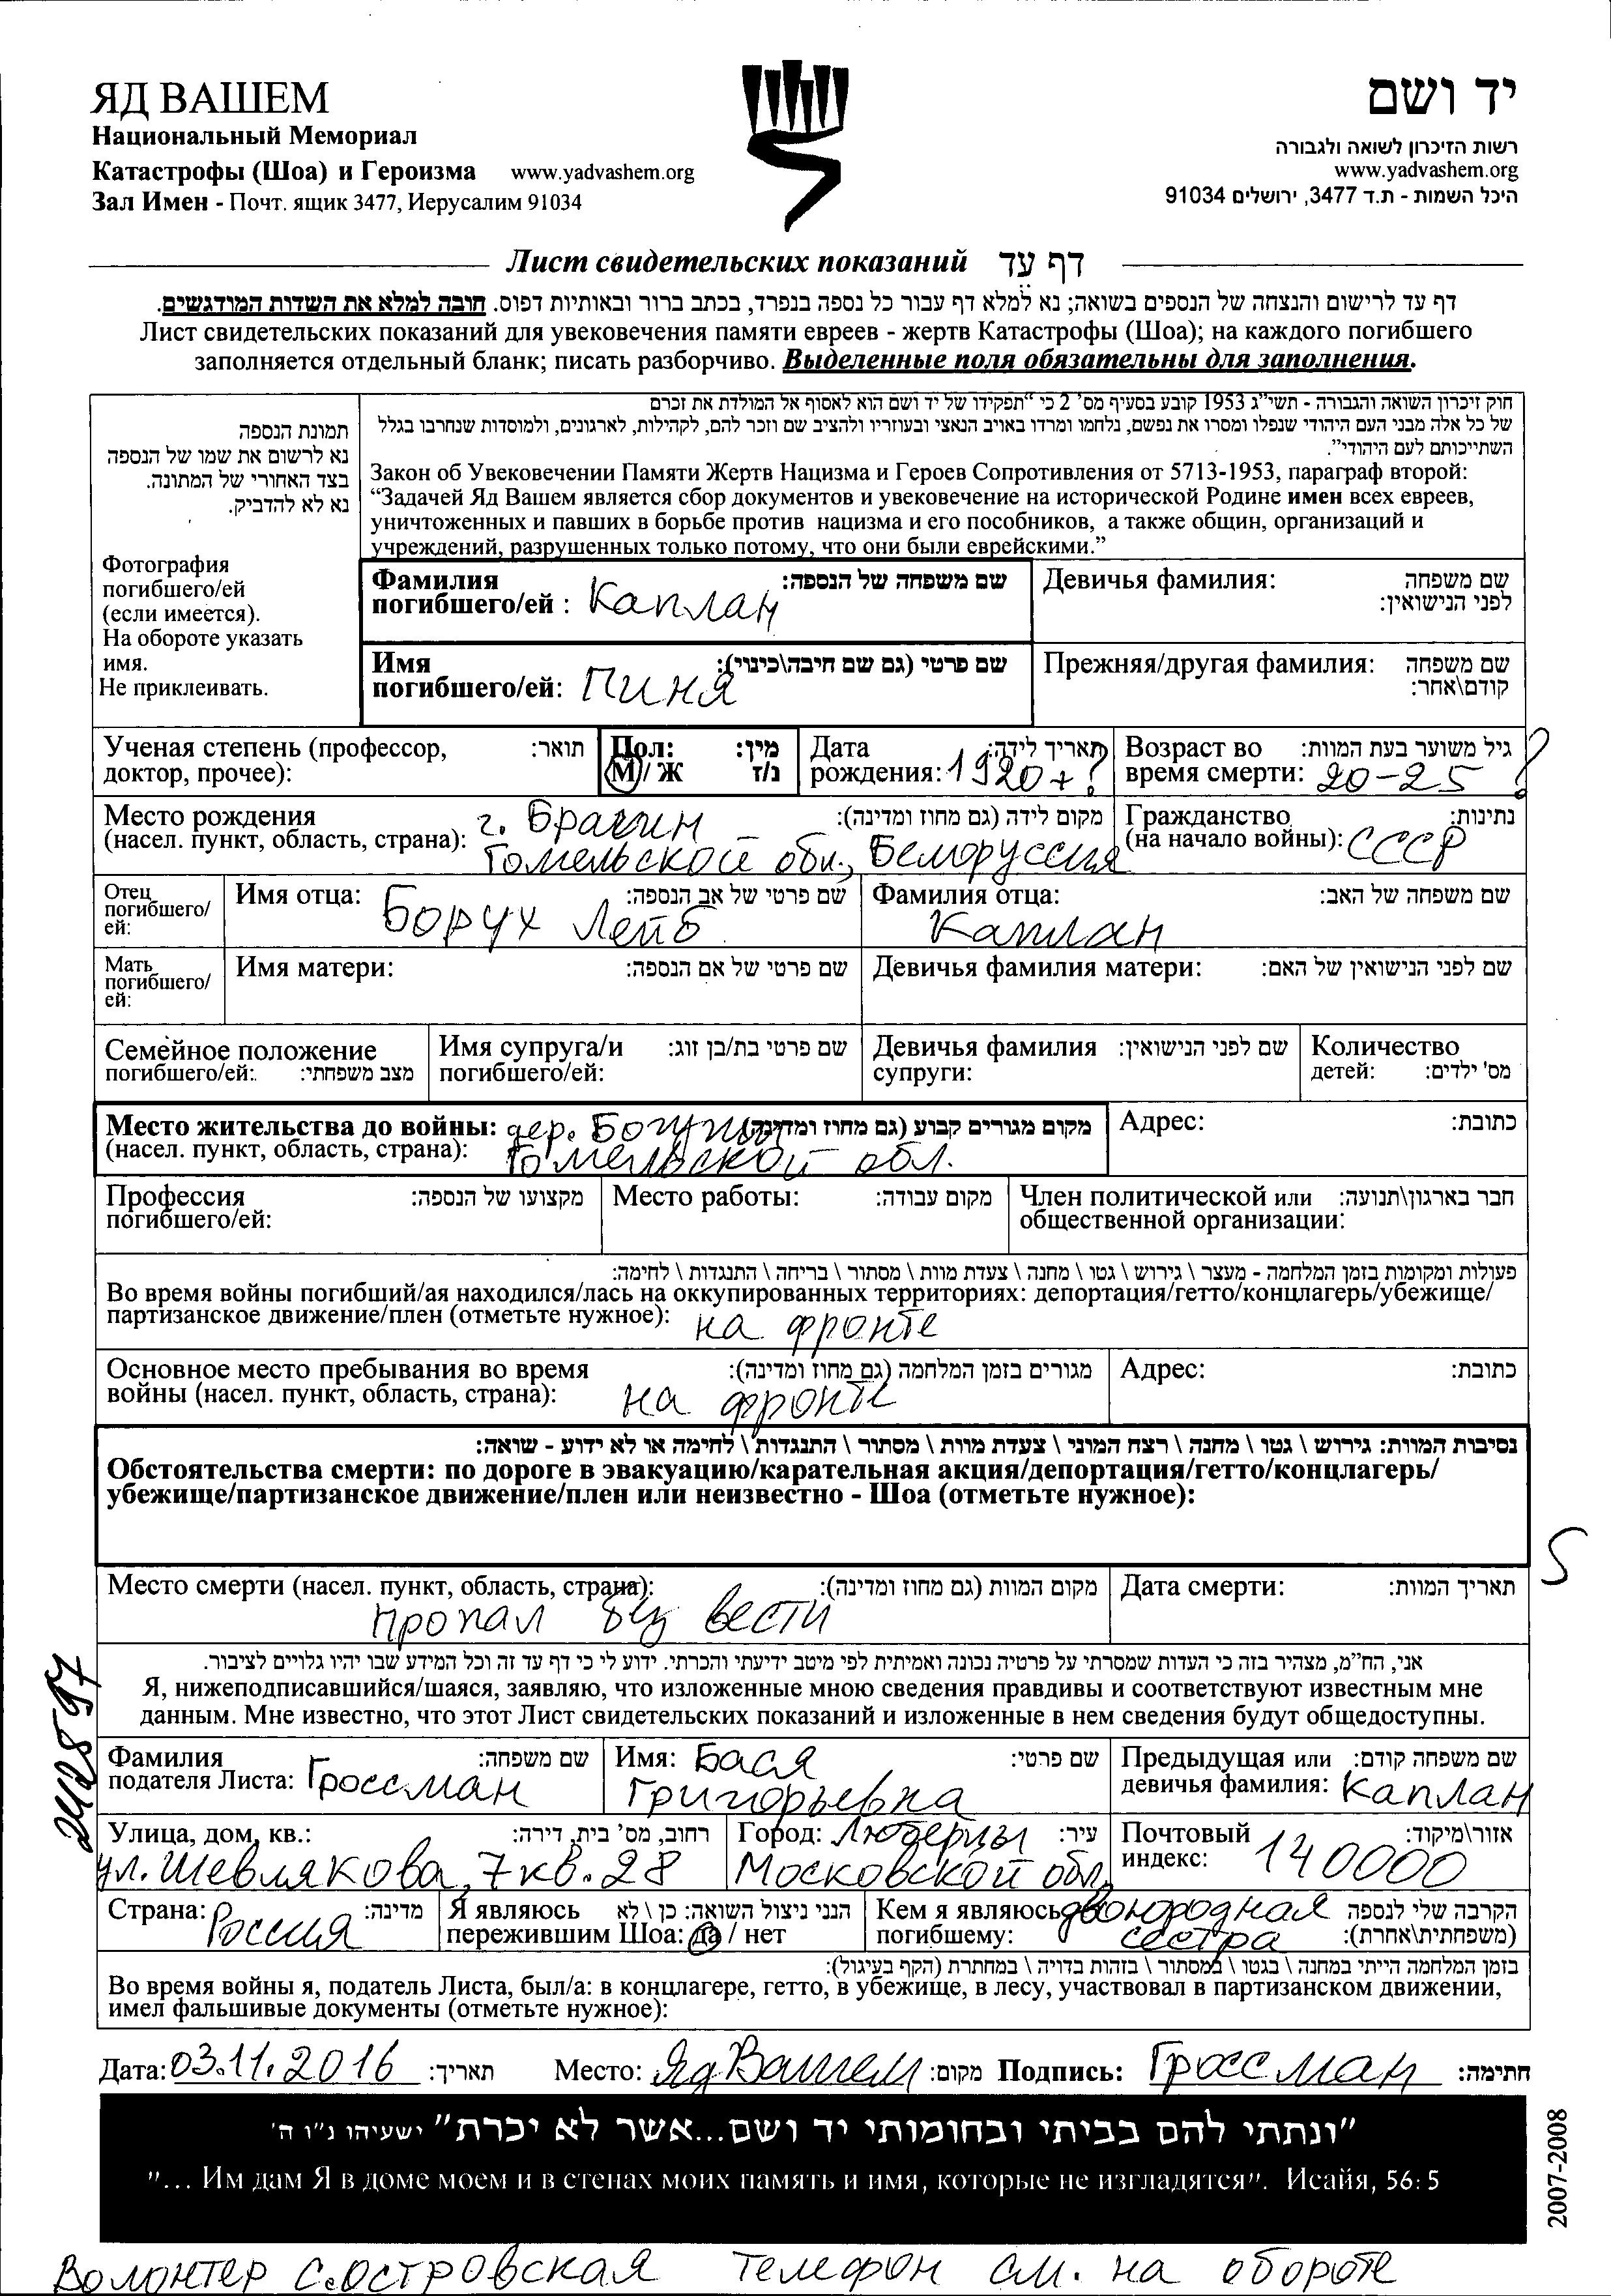 ЯД ВАШЕМ
Национальный Мемориал
Катастрофы (Шоа) и Героизма www.yadvashem.org
Зал Имен - Почт. ящик 3477, Иерусалим 91034
יד ושם
רשות הזיכרון לשואה ולגבורה
www.yadvashem.org
היכל השמות - ת.ד 3477, ירושלים 91034
Лист свидетельских показаний דף עד
דף עד לרישום והנצחה של הנספים בשואה; נא למלא דף עבור כל נספה בנפרד, בכתב ברור ובאותיות דפוס. חובה למלא את השדות המודגשים.
Лист свидетельских показаний для увековечения памяти евреев - жертв Катастрофы (Шоа); на каждого погибшего
заполняется отдельный бланк; писать разборчиво. Выделенные поля обязательны для заполнения.
תמונת הנספה
נא לרשום את שמו של הנספה
בצד האחורי של המתונה.
נא לא להדביק.
Фотография
погибшего/ей
(если имеется).
На обороте указать
имя.
Не приклеивать.
חוק זיכרון השואה והגבורה - תשי"ג 1953 קובע בסעיף מס' 2 כי "תפקידו של יד ושם הוא לאסוף אל המולדת את זכרם
של כל אלה מבני העם היהודי שנפלו ומסרו את נפשם, נלחמו ומרדו באויב הנאצי ובעוזריו ולהציב שם וזכר להם, לקהילות, לארגונים, ולמוסדות שנחרבו בגלל
השתייכותם לעם היהודי".
Закон об Увековечении Памяти Жертв Нацизма и Героев Сопротивления от 5713-1953, параграф второй:
"Задачей Яд Вашем является сбор документов и увековечение на исторической Родине имен всех евреев,
уничтоженных и павших в борьбе против нацизма и его пособников, а также общин, организаций и
учреждений, разрушенных только потому, что они были еврейскими."
Фамилия שם משפחה של הנספה:
погибшего/ей : Каплан
Девичья фамилия: שם משפחה
לפני הנישואין:
Имя שם פרטי (גם שם חיבה\כינוי):
погибшего/ей: Пиня
Прежняя/другая фамилия: שם משפחה
קודם\אחר:
Ученая степень (профессор, תואר:
доктор, прочее):
Пол: מין:
М / Ж ז/נ
Дата תאריך לידה:
рождения: 1920+?
Возраст во גיל משוער בעת המוות:
время смерти: 20-25 ?
Место рождения г. Брагин מקום לידה (גם מחוז ומדינה):
(насел. пункт, область, страна): Гомельской обл., Белоруссия
Гражданство נתינות:
(на начало войны): СССР
Отец
погибшего/
ей:
Имя отца: Борух Лейб שם פרטי של אב הנספה:
Фамилия отца: Каплан שם משפחה של האב:
Мать
погибшего/
ей:
Имя матери: שם פרטי של אם הנספה:
Девичья фамилия матери: שם לפני הנישואין של האם:
Семейное положение
погибшего/ей: מצב משפחתי:
Имя супруга/и שם פרטי בת/בן זוג:
погибшего/ей:
Девичья фамилия שם לפני הנישואין:
супруги:
Количество
детей: מס' ילדים:
Место жительства до войны: дер. מקום מגורים קבוע (גם מחוז ומדינה):
(насел. пункт, область, страна): Гомельской обл.
Адрес: כתובת:
Профессия מקצועו של הנספה:
погибшего/ей:
Место работы: מקום עבודה:
Член политической или חבר בארגון\תנועה:
общественной организации:
פעולות ומקומות בזמן המלחמה - מעצר \ גירוש \ גטו \ מחנה \ צעדת מוות \ מסתור \ בריחה \ התנגדות \ לחימה:
Во время войны погибший/ая находился/лась на оккупированных территориях: депортация/гетто/концлагерь/убежище/
партизанское движение/плен (отметьте нужное): на фронте
Основное место пребывания во время מגורים בזמן המלחמה (גם מחוז ומדינה):
войны (насел. пункт, область, страна): на фронте
Адрес: כתובת:
נסיבות המוות: גירוש \ גטו \ מחנה \ רצח המוני \ צעדת מוות \ מסתור \ התנגדות \ לחימה או לא ידוע - שואה:
Обстоятельства смерти: по дороге в эвакуацию/карательная акция/депортация/гетто/концлагерь/
убежище/партизанское движение/плен или неизвестно - Шоа (отметьте нужное):
Место смерти (насел. пункт, область, страна): מקום המוות (גם מחוז ומדינה):
пропал без вести
Дата смерти: תאריך המוות:
אני, הח"מ, מצהיר בזה כי העדות שמסרתי על פרטיה נכונה ואמיתית לפי מיטב ידיעתי והכרתי. ידוע לי כי דף עד זה וכל המידע שבו יהיו גלויים לציבור.
Я, нижеподписавшийся/шаяся, заявляю, что изложенные мною сведения правдивы и соответствуют известным мне
данным. Мне известно, что этот Лист свидетельских показаний и изложенные в нем сведения будут общедоступны.
Фамилия שם משפחה:
подателя Листа: Гроссман
Имя: Бася שם פרטי:
Григорьевна
Предыдущая или שם משפחה קודם:
девичья фамилия: Каплан
Улица, дом, кв.: רחוב, מס' בית, דירה:
ул. Шевлякова, 7 кв. 28
Город: Люберцы עיר:
Московской обл.
Почтовый אזור\מיקוד:
индекс: 140000
Страна: Россия מדינה:
Я являюсь הנני ניצול השואה: כן \ לא
пережившим Шоа: да / нет
Кем я являюсь двоюродная הקרבה שלי לנספה
погибшему: сестра (משפחתית\אחרת):
בזמן המלחמה הייתי במחנה \ בגטו \ במסתור \ בזהות בדויה \ במחתרת (הקף בעיגול):
Во время войны я, податель Листа, был/а: в концлагере, гетто, в убежище, в лесу, участвовал в партизанском движении,
имел фальшивые документы (отметьте нужное):
Дата: 03.11.2016 תאריך: Место: Яд Вашем מקום: Подпись: Гроссман חתימה:
"ונתתי להם בביתי ובחומותי יד ושם...אשר לא יכרת" ישעיהו נ"ו ה'
"... Им дам Я в доме моем и в стенах моих память и имя, которые не изгладятся". Исайя, 56: 5
2007-2008
Волонтер С. Островская телефон см. на обороте